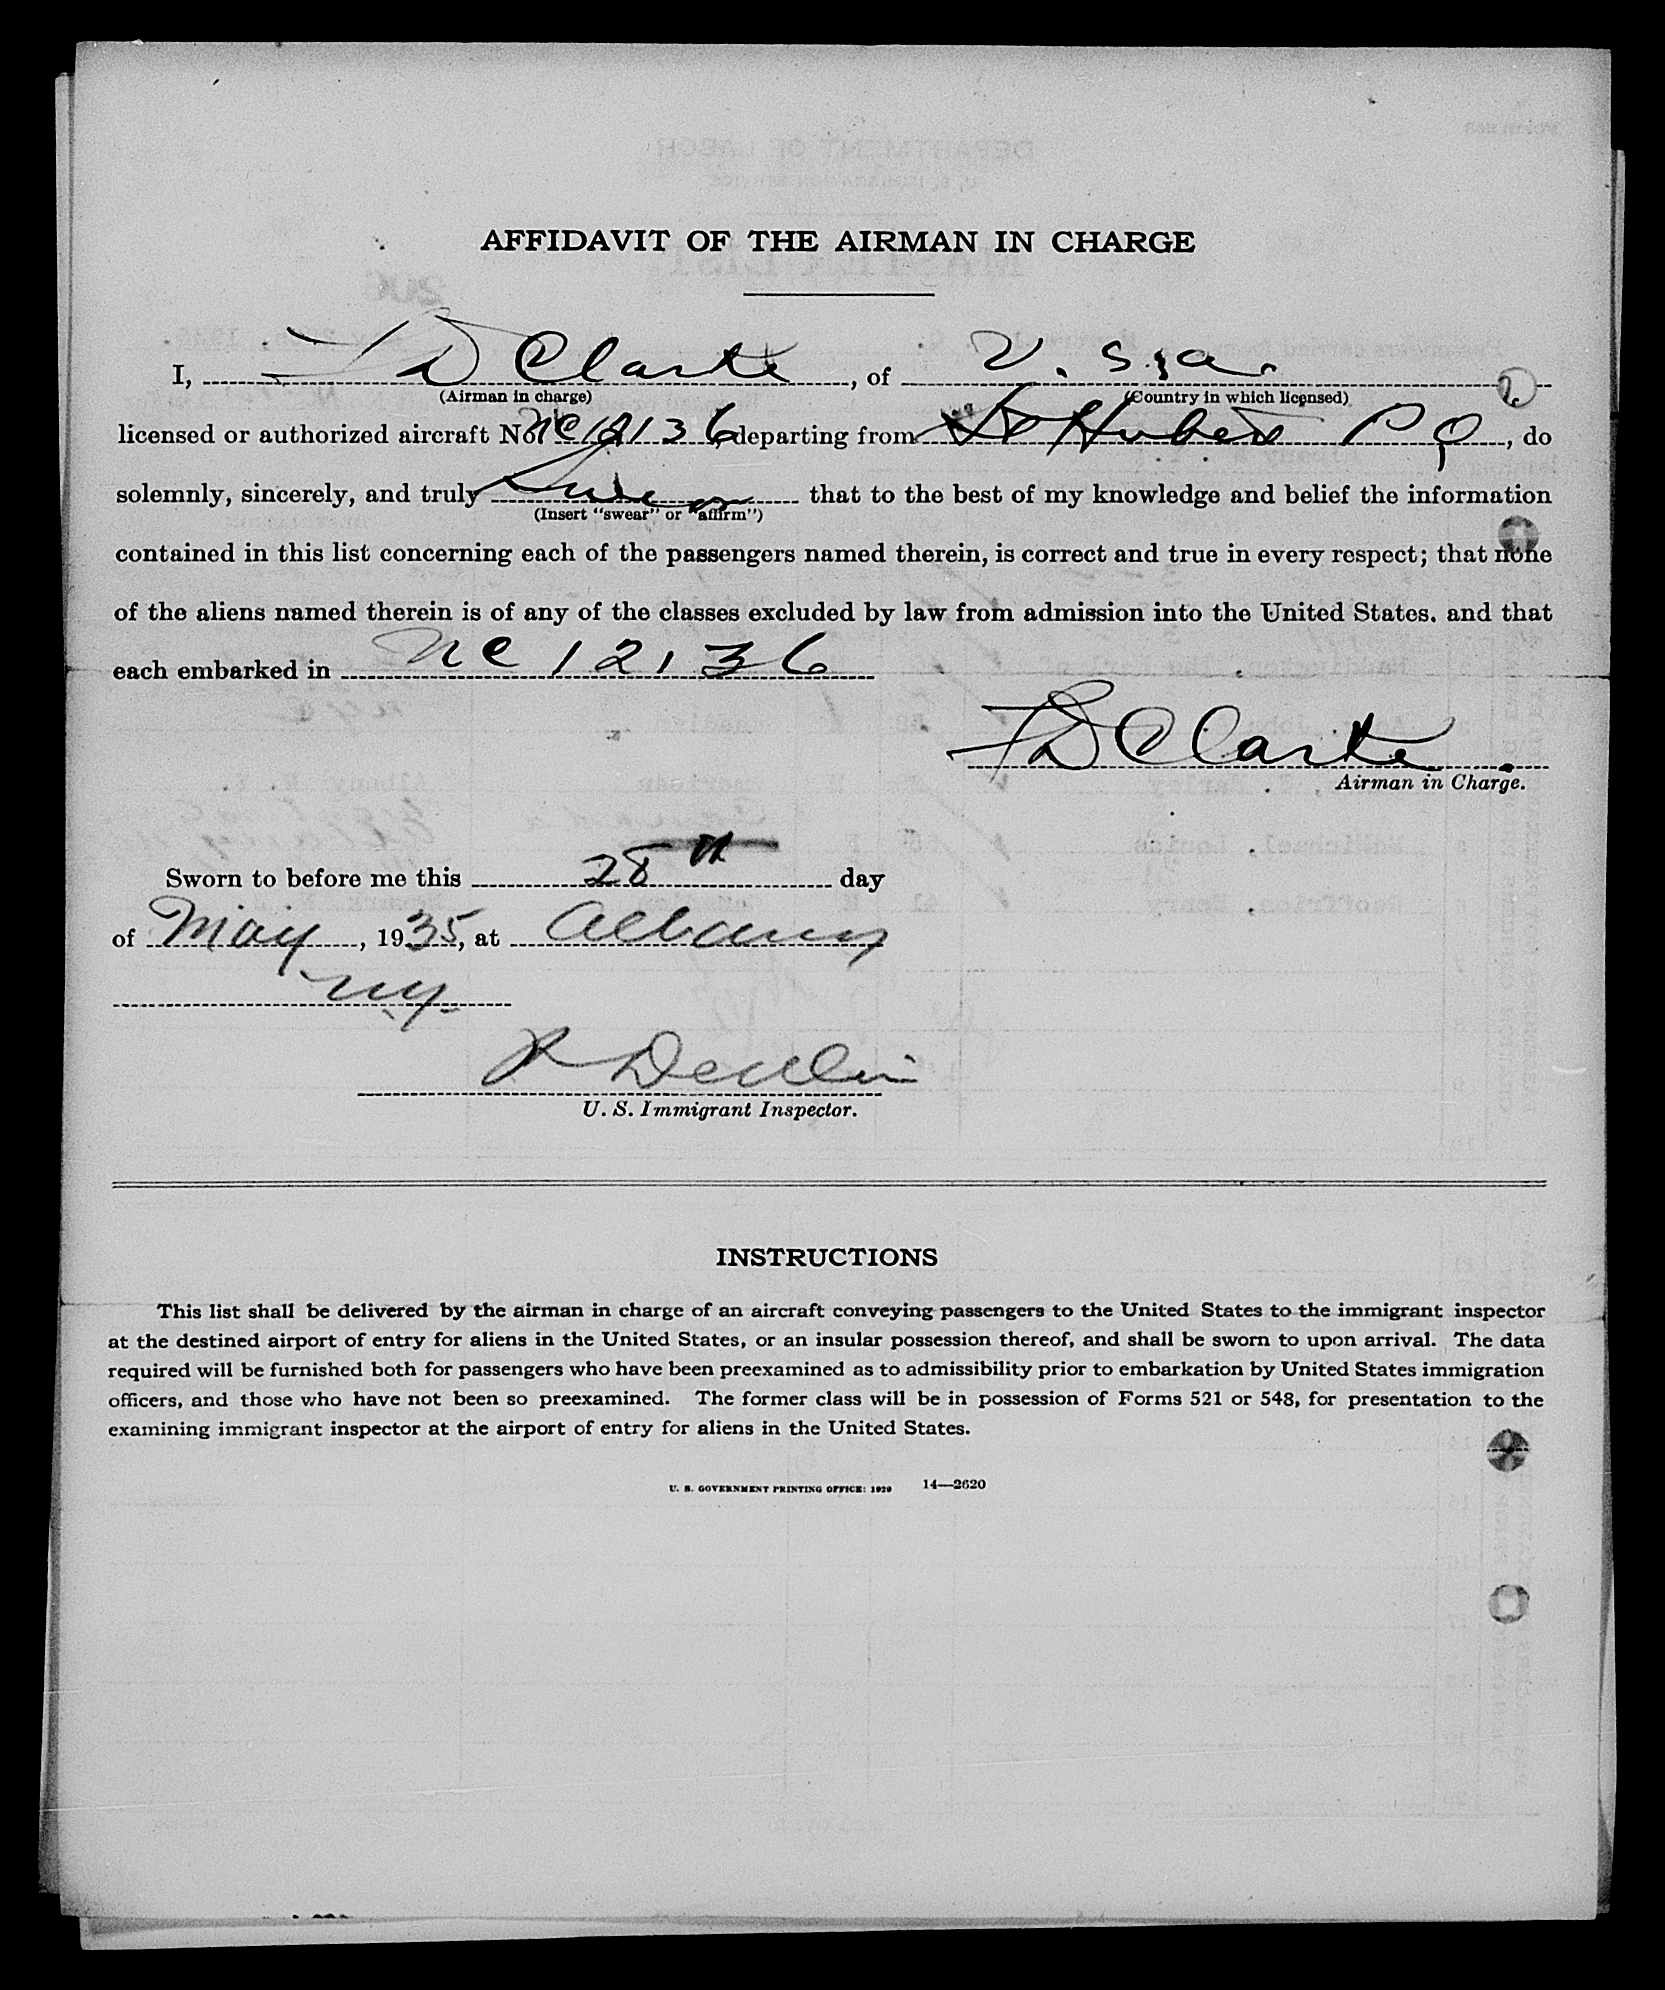 AFFIDAVIT OF THE AIRMAN IN CHARGE
I, F D Clarke, of U.S.A.
(Airman in charge) (Country in which licensed)
licensed or authorized aircraft No. NC12136, departing from St Hubert P Q, do
solemnly, sincerely, and truly Swear that to the best of my knowledge and belief the information
(Insert "swear" or "affirm")
contained in this list concerning each of the passengers named therein, is correct and true in every respect; that none
of the aliens named therein is of any of the classes excluded by law from admission into the United States. and that
each embarked in NC 12136
F D Clarke.
Airman in Charge.
Sworn to before me this 28th day
of May, 1935, at Albany
NY.
R Devlin
U. S. Immigrant Inspector.
INSTRUCTIONS
This list shall be delivered by the airman in charge of an aircraft conveying passengers to the United States to the immigrant inspector
at the destined airport of entry for aliens in the United States, or an insular possession thereof, and shall be sworn to upon arrival. The data
required will be furnished both for passengers who have been preexamined as to admissibility prior to embarkation by United States immigration
officers, and those who have not been so preexamined. The former class will be in possession of Forms 521 or 548, for presentation to the
examining immigrant inspector at the airport of entry for aliens in the United States.
U. S. GOVERNMENT PRINTING OFFICE: 1929 14—2620